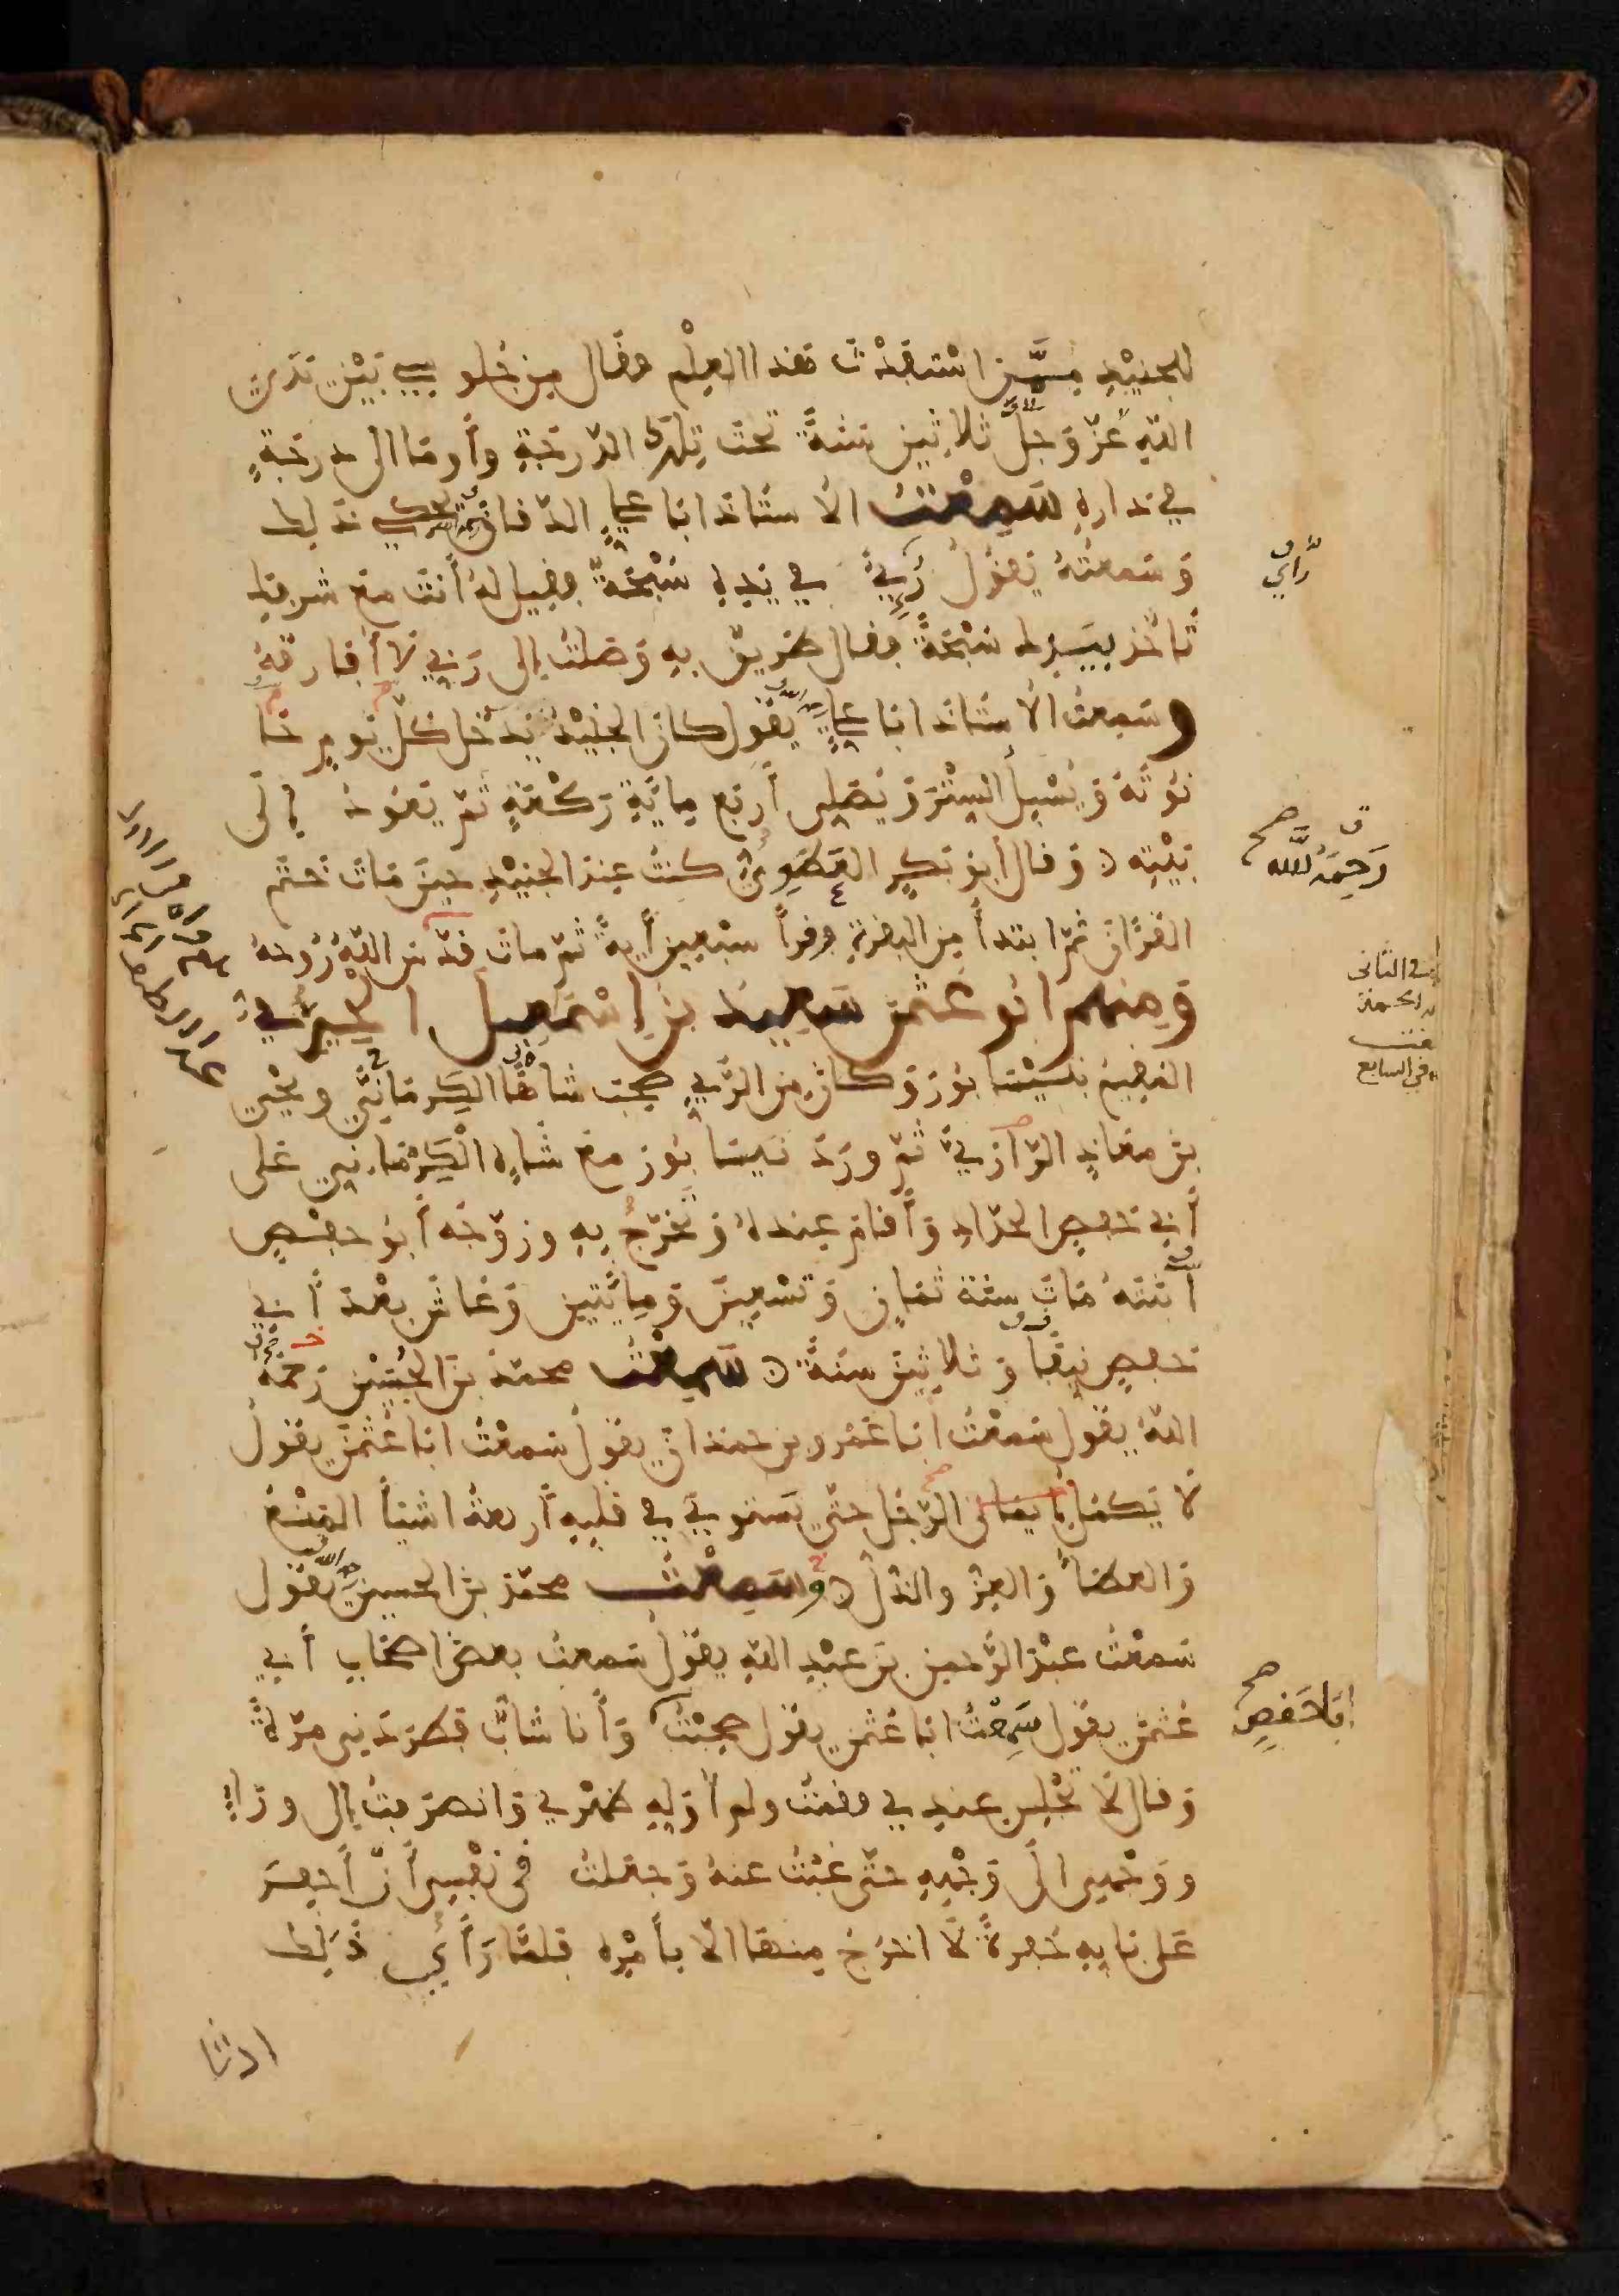 للجنيد ممن استفدت هذا العلم فقال من جلوسي بين يدي
الله عز وجل ثلاثين سنة تحت تلك الدرجة وأومأ إلى درجة
في داره سمعت الأستاذ ابا علي الدقاق يحكي ذلك
وسمعته يقول رُئي في يده سبحة فقيل له أنت مع شرفك
تأخذ بيدك سبحة فقال طريق به وصلت إلى ربي لا أفارقه
وسمعت الأستاذ ابا علي يقول كان الجنيد يدخل كل يوم حا
نوته ويسبل الستر ويصلي أربع مائة ركعة ثم يعود إلى
بيته وقال ابو بكر العطوي كنت عند الجنيد حين مات ختم
القرآن ثم ابتدأ من البقرة وقرأ سبعين أية ثم مات قدس الله روحه
ومنهم ابو عثمن سعيد بن إسمعيل الحيري
المقيم بنيسابور وكان من الري صحب شاها الكرماني ويحيى
بن معاذ الرازي ثم ورد نيسابور مع شاه الكرماني على
أبي حفص الحداد وأقام عنده وتخرج به وزوجه أبو حفص
أبنته مات سنة ثمان وتسعين ومائتين وعاش بعد أبي
حفص نيفا وثلاثين سنة سمعت محمد بن الحسين رحمه
الله يقول سمعت ابا عمرو بن حمدان يقول سمعت ابا عثمن يقول
لا يكمل إيمان الرجل حتى يستوي في قلبه أربعة اشيأ المنع
والعطأ والعز والذل وسمعت محمد بن الحسين رحمه الله يقول
سمعت عبد الرحمن بن عبد الله يقول سمعت بعض اصحاب أبي
عثمن يقول سمعت ابا عثمن يقول صحبت وأنا شاب فطردني مرة
وقال لا تجلس عندي فقمت ولم أوله ظهري وانصرفت إلى ورأي
ووجهي الى وجهه حتى غبت عنه وجعلت في نفسي أن أحفر
على بابه حفرة لا اخرج منها الا بأمره فلما رأى ذلك
ادنا
رأي
رحمه الله صح
في الثاني
في السابع
أبا حفص صح